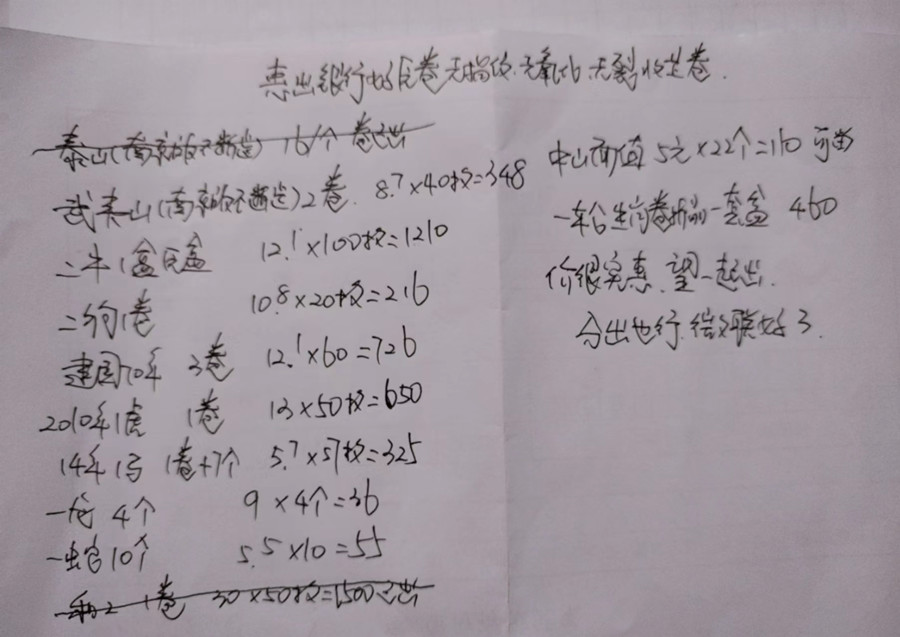 惠出银行好品卷无揭伤.无氧化.无裂收藏卷.
泰山(南京的不断送) 16个 卷已出
武夷山(南京的不断送)2卷. 8.7×40枚=348
二牛1盒原盒 12.1×100枚=1210
二狗1卷 10.8×20枚=216
建国70年 3卷 12.1×60=726
2010年1虎 1卷 13×50枚=650
14年1马 1卷+7个 5.7×57枚=325
一龙 4个 9×4个=36
一蛇10个 5.5×10=55
一和2 1卷 30×50枚=1500已出
中山面值 5元×22个=110
一轮生肖卷拆的一套盒 460
价很实惠.望一起出.
分出也行.微联好了.